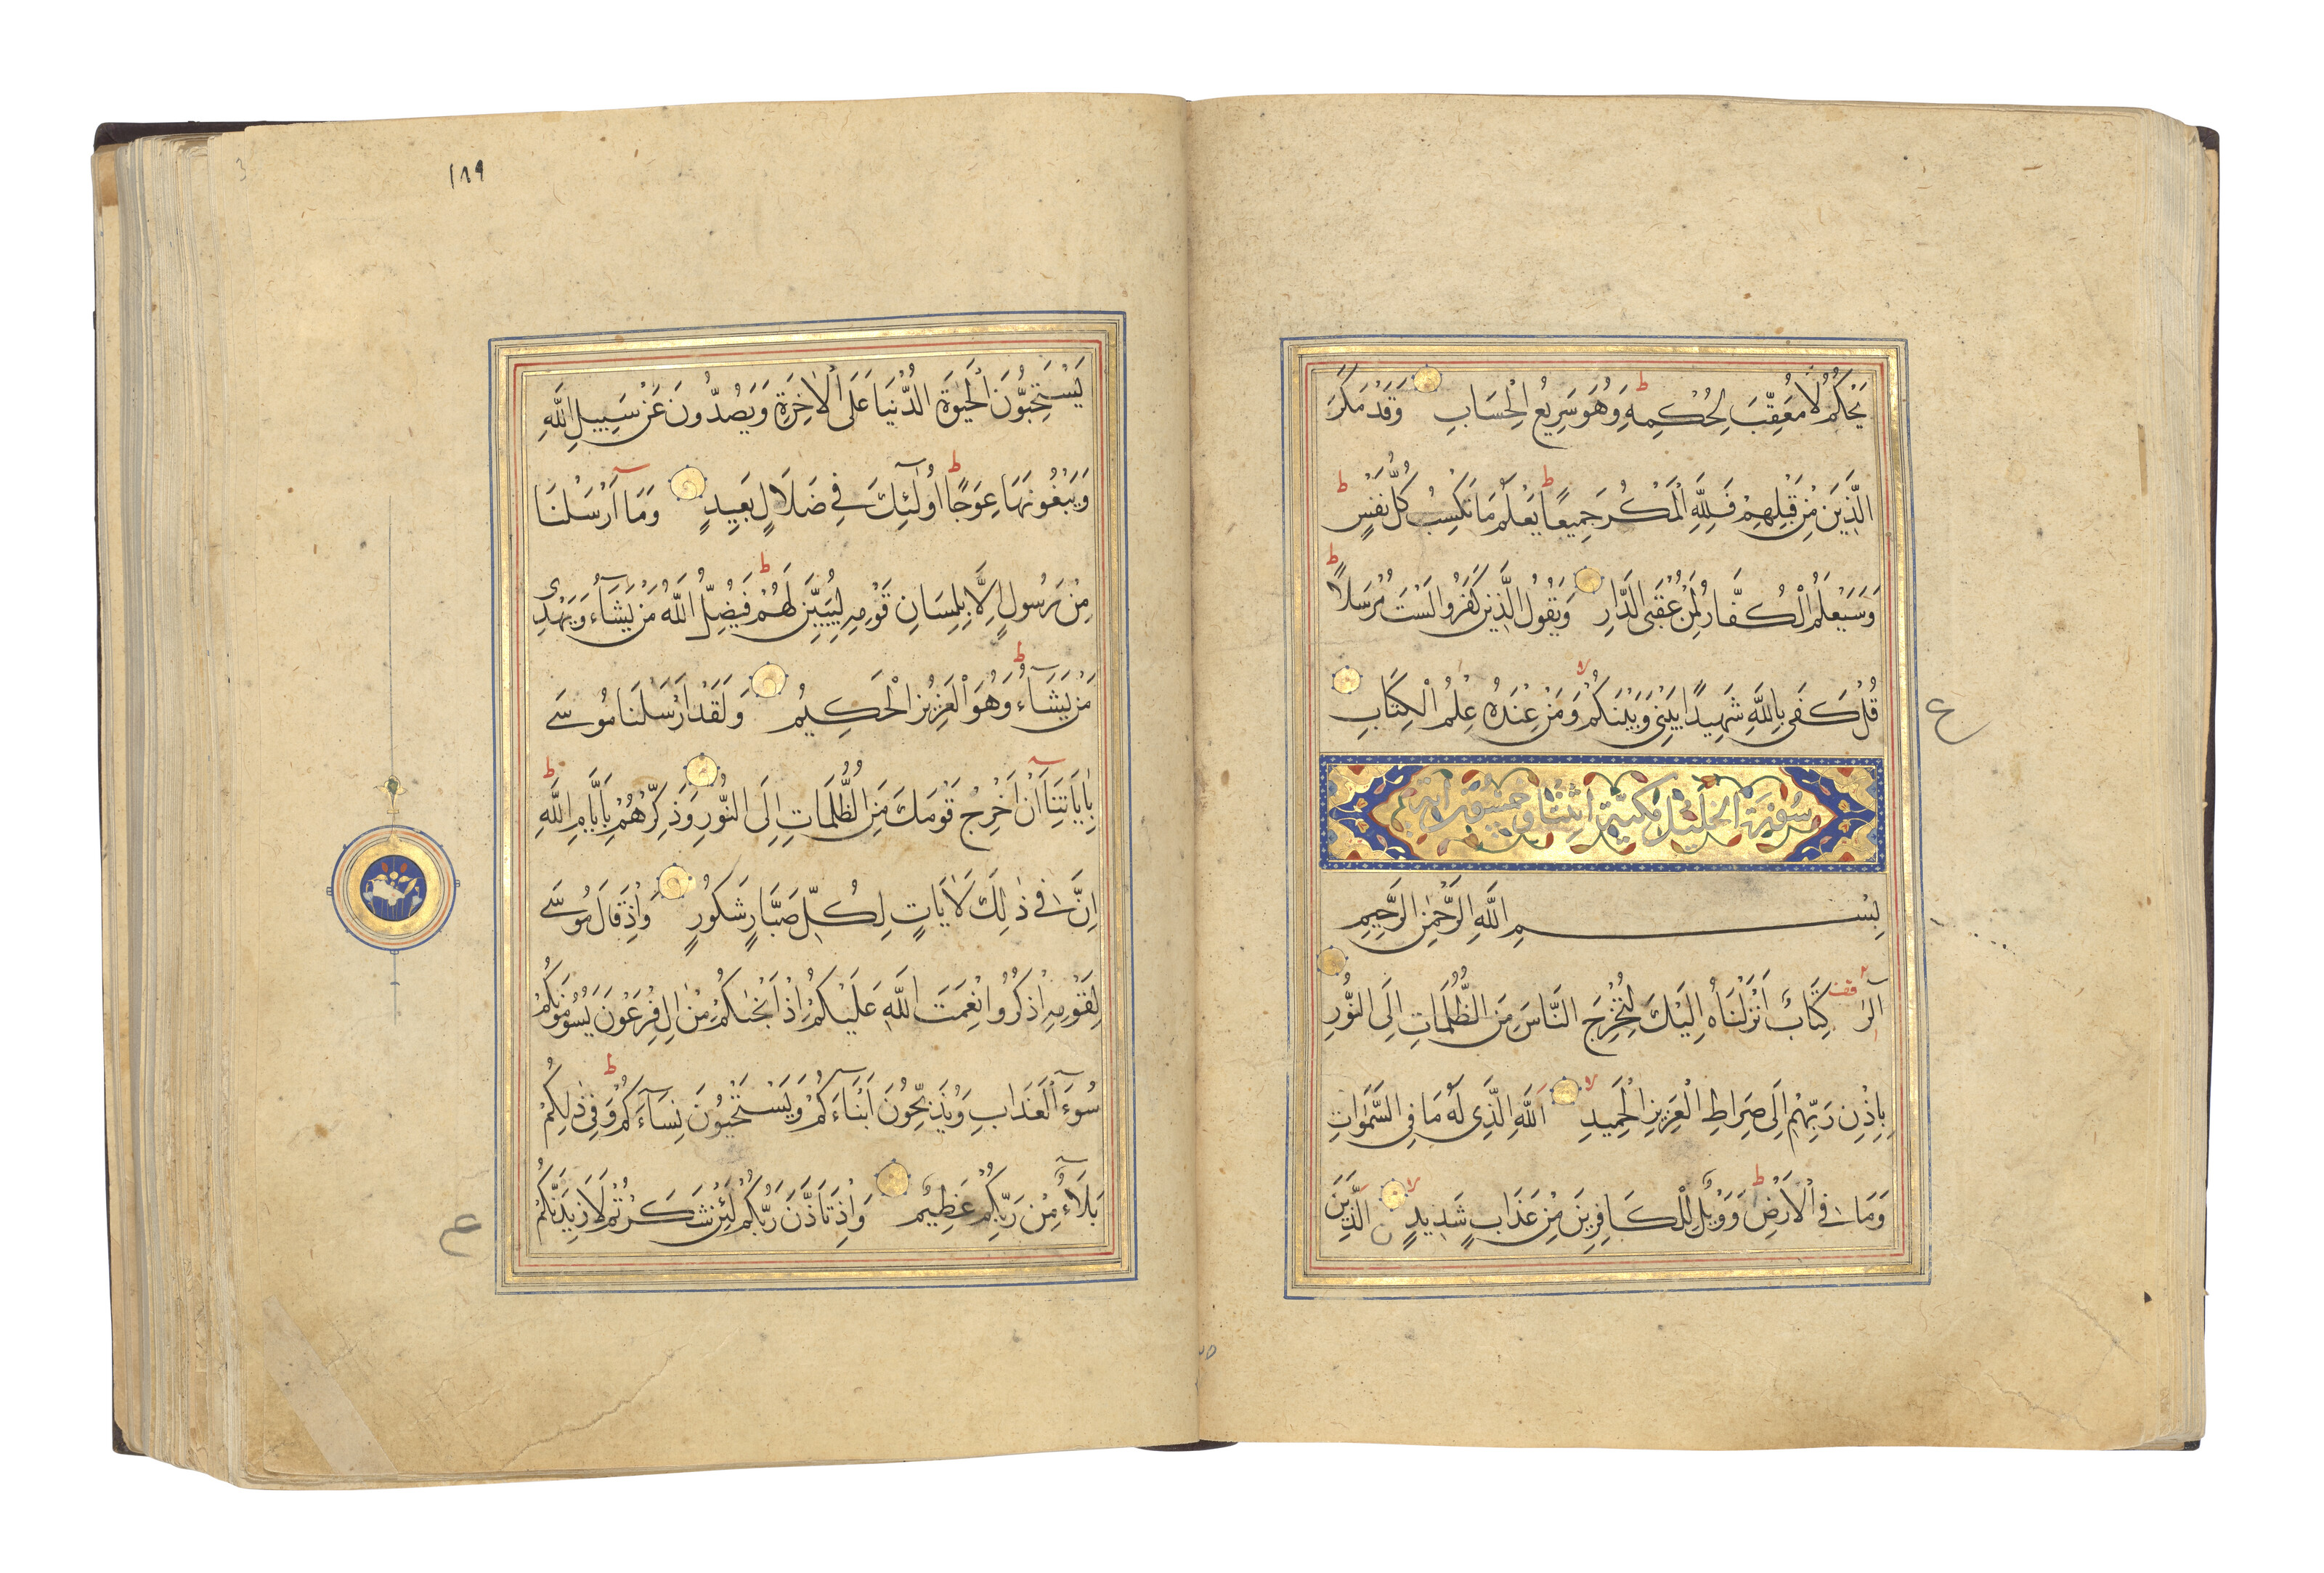 يَحْكُمُ لَا مُعَقِّبَ لِحُكْمِهِ وَهُوَ سَرِيعُ الْحِسَابِ وَقَدْ مَكَرَ
الَّذِينَ مِنْ قَبْلِهِمْ فَلِلَّهِ الْمَكْرُ جَمِيعًا يَعْلَمُ مَا تَكْسِبُ كُلُّ نَفْسٍ
وَسَيَعْلَمُ الْكُفَّارُ لِمَنْ عُقْبَى الدَّارِ وَيَقُولُ الَّذِينَ كَفَرُوا لَسْتَ مُرْسَلًا
قُلْ كَفَى بِاللَّهِ شَهِيدًا بَيْنِي وَبَيْنَكُمْ وَمَنْ عِنْدَهُ عِلْمُ الْكِتَابِ
ع
سورة الخليل مكية اثنتا وخمسون آية
بِسْمِ اللَّهِ الرَّحْمَنِ الرَّحِيمِ
الٓرٰ قف كِتَابٌ أَنْزَلْنَاهُ إِلَيْكَ لِتُخْرِجَ النَّاسَ مِنَ الظُّلُمَاتِ إِلَى النُّورِ
بِإِذْنِ رَبِّهِمْ إِلَى صِرَاطِ الْعَزِيزِ الْحَمِيدِ اَللَّهِ الَّذِي لَهُ مَا فِي السَّمٰوَاتِ
وَمَا فِي الْأَرْضِ وَوَيْلٌ لِلْكَافِرِينَ مِنْ عَذَابٍ شَدِيدٍ اَلَّذِينَ
١٨٩
يَسْتَحِبُّونَ الْحَيٰوةَ الدُّنْيَا عَلَى الْآخِرَةِ وَيَصُدُّونَ عَنْ سَبِيلِ اللَّهِ
وَيَبْغُونَهَا عِوَجًا أُولٰٓئِكَ فِي ضَلَالٍ بَعِيدٍ وَمَا أَرْسَلْنَا
مِنْ رَسُولٍ إِلَّا بِلِسَانِ قَوْمِهِ لِيُبَيِّنَ لَهُمْ فَيُضِلُّ اللَّهُ مَنْ يَشَآءُ وَيَهْدِي
مَنْ يَشَآءُ وَهُوَ الْعَزِيزُ الْحَكِيمُ وَلَقَدْ أَرْسَلْنَا مُوسَى
بِاٰيَاتِنَا أَنْ أَخْرِجْ قَوْمَكَ مِنَ الظُّلُمَاتِ إِلَى النُّورِ وَذَكِّرْهُمْ بِأَيَّامِ اللَّهِ
إِنَّ فِي ذٰلِكَ لَاٰيَاتٍ لِكُلِّ صَبَّارٍ شَكُورٍ وَإِذْ قَالَ مُوسَى
لِقَوْمِهِ اذْكُرُوا نِعْمَتَ اللَّهِ عَلَيْكُمْ إِذْ أَنْجٰيكُمْ مِنْ اٰلِ فِرْعَوْنَ يَسُومُونَكُمْ
سُوٓءَ الْعَذَابِ وَيُذَبِّحُونَ أَبْنَآءَكُمْ وَيَسْتَحْيُونَ نِسَآءَكُمْ وَفِي ذٰلِكُمْ
بَلَآءٌ مِنْ رَبِّكُمْ عَظِيمٌ وَإِذْ تَأَذَّنَ رَبُّكُمْ لَئِنْ شَكَرْتُمْ لَأَزِيدَنَّكُمْ